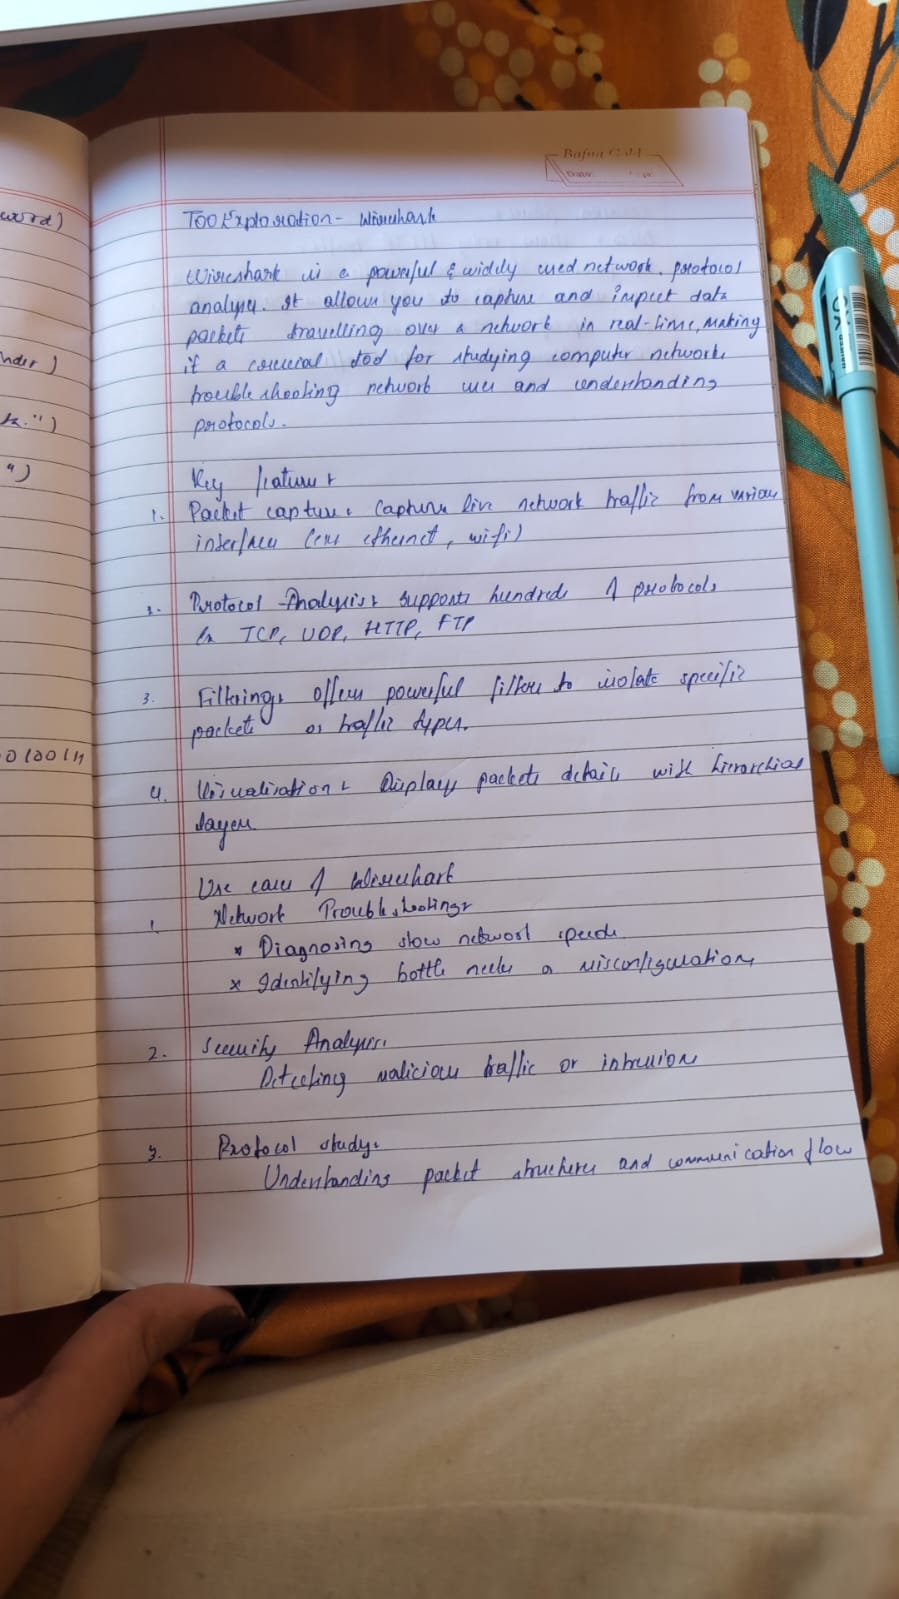 word)
nder)
k.")
")
Bafna Gold
Date: Page:
Tool Exploration - Wireshark
Wireshark is a powerful & widely used network protocol
analyser. It allows you to capture and inspect data
packets travelling over a network in real-time, making
it a crucial tool for studying computer network,
trouble shooting network uses and understanding
protocols.
Key features
1. Packet capture: Captures live network traffic from various
interfaces (eg ethernet, wifi)
2. Protocol -Analysis: supports hundreds of protocols
TCP, UDP, HTTP, FTP
3. Filtering: offers powerful filters to isolate specific
packets or traffic types.
4. Visualisation: Displays packets details with hierarchical
layers
Use cases of Wireshark
1. Network Troubleshooting:
* Diagnosing slow network speeds
* Identifying bottle necks or misconfigurations
2. Security Analysis:
Detecting malicious traffic or intrusion
3. Protocol study:
Understanding packet structures and communication flow